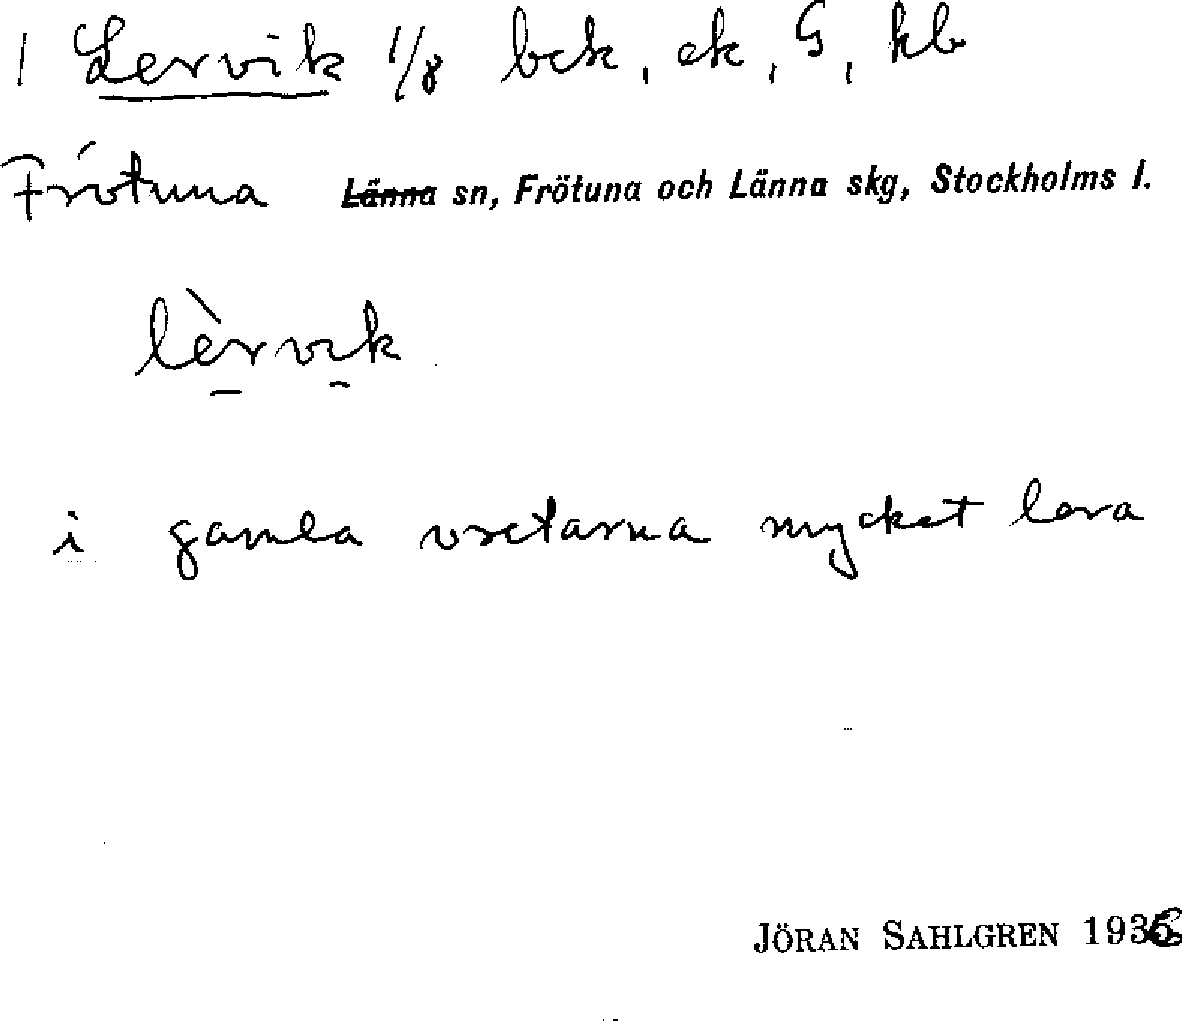 1 Lervik 1/8 bek, ek, G, kb
Frötuna Länna sn, Frötuna och Länna skg, Stockholms l.
lèrvik
i gamla vretarna mycket lera
JÖRAN SAHLGREN 1936